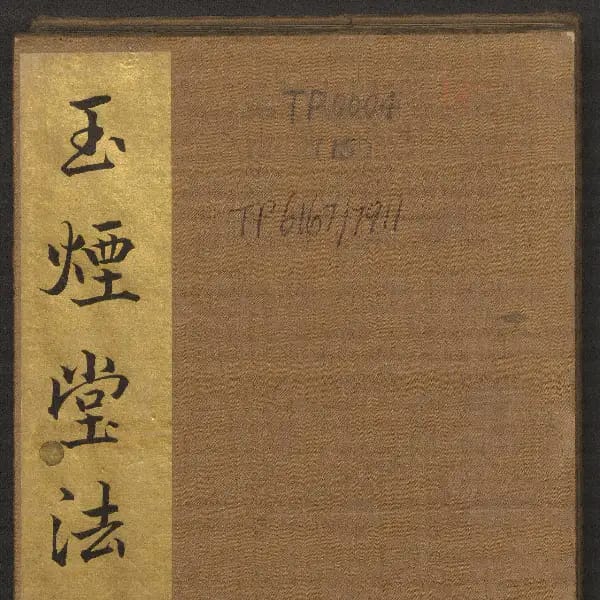 玉煙堂法
TP 0004
(15)
TP6167/7911